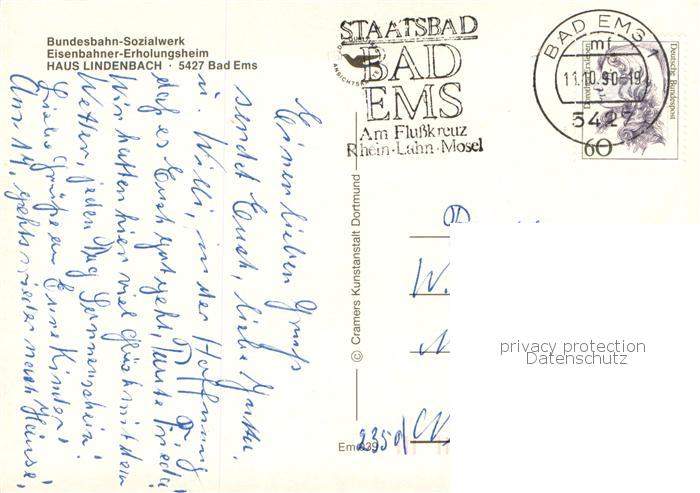 Bundesbahn-Sozialwerk
Eisenbahner-Erholungsheim
HAUS LINDENBACH · 5427 Bad Ems
STAATSBAD
BAD
EMS
Am Flußkreuz
Rhein·Lahn·Mosel
BAD EMS 1
mf
11.10.90-19
5427
Deutsche Bundespost
60
Einen lieben Gruß
sendet Euch, liebe Jutta
u. Willi, in der Hoffnung
daß es Euch gut geht, Tante Frieda
Wir hatten hier viel Glück mit dem
Wetter, jeden Tag Sonnenschein!
Liebe Grüße an Eure Kinder!
Am 14. gehts wieder nach Hause,
© Cramers Kunstanstalt Dortmund
W.
Ems
privacy protection
Datenschutz